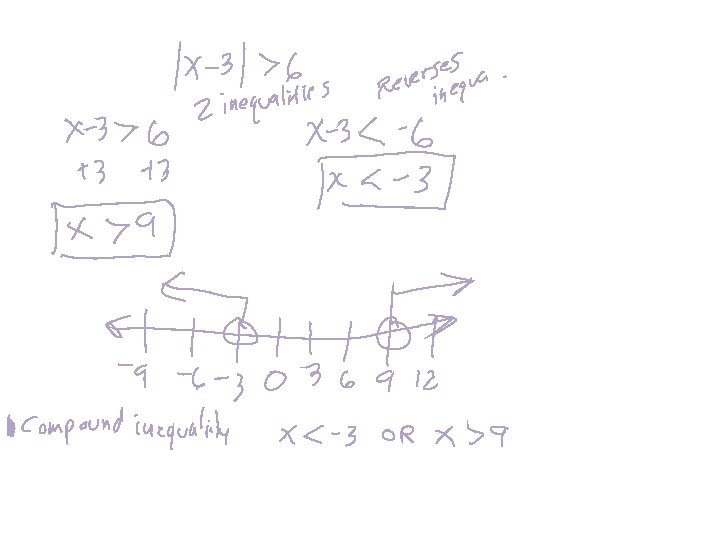 |x-3| > 6
2 inequalities
Reverses
inequa.
x-3 > 6
+3 +3
x > 9
x-3 < -6
x < -3
-9 -6 -3 0 3 6 9 12
Compound inequality x < -3 OR x > 9